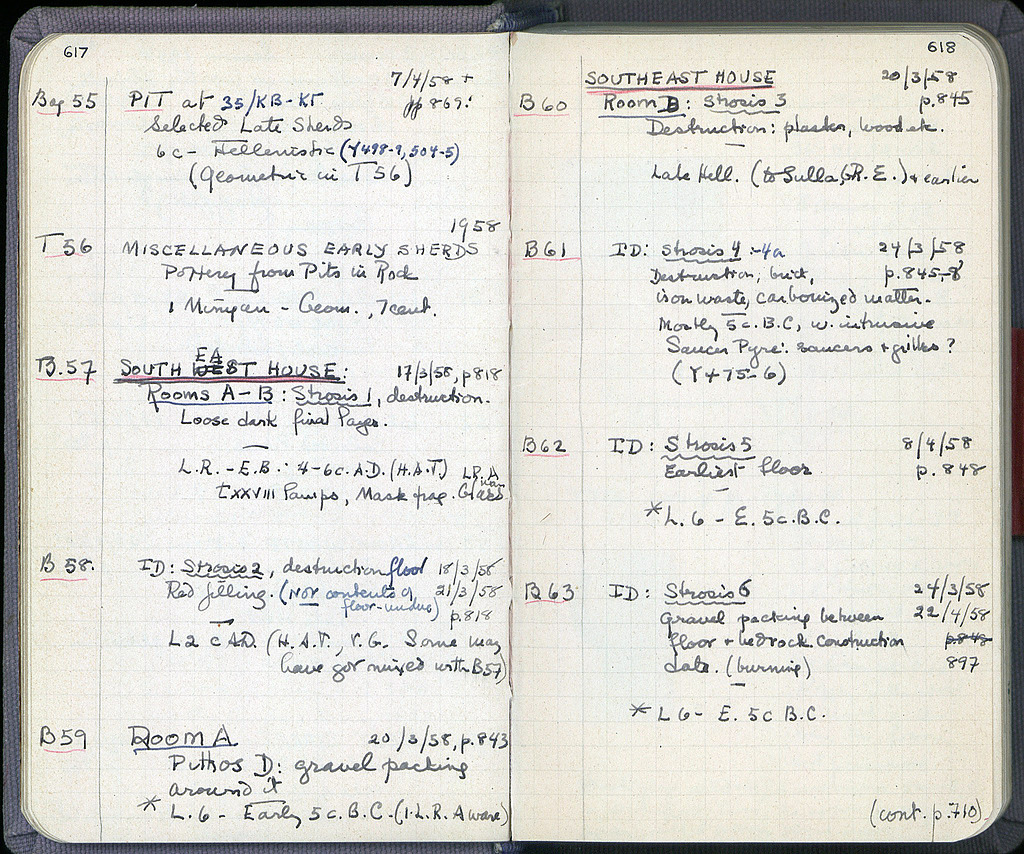 617
7/4/58 +
Bag 55 PIT at 35/KB-KΓ pp 869:
Selected Late Sherds
6 c - Hellenistic (Y498-9, 504-5)
(Geometric in T 56)
1958
T 56 MISCELLANEOUS EARLY SHERDS
Pottery from Pits in Rock
1 Minyan - Geom., 7 cent.
EA
B.57 SOUTH WEST HOUSE: 17/3/58, p 818
Rooms A-B: Strosis 1, destruction.
Loose dark final layer.
L.R. - E.B. : 4-6 c. A.D. (H.A.T.) LR. A
XXVIII Lamps, Mask frag. Glass
B 58. ID: Strosis 2, destruction floor 18/3/58
Red filling. (NOT contents of 21/3/58
floor-) p.818
L 2 c A.D. (H.A.T., V.G. Some may
have got mixed with B57)
B 59 ROOM A 20/3/58, p.843
Pithos D: gravel packing
around it
* L. 6 - Early 5 c. B.C. (1 L.R. A ware)
618
SOUTHEAST HOUSE 20/3/58
B 60 Room B: Strosis 3 p.845
Destruction: plaster, wood etc.
Late Hell. (to Sulla, R. E.) + earlier
B61 ID: Strosis 4 -4a 24/3/58
Destruction, brick, p.845-8
iron waste, carbonized matter.
Mostly 5 c. B.C., w. intrusive
Saucer Pyre: saucers + grilles?
(Y475-6)
B62 ID: Strosis 5 8/4/58
Earliest floor p. 848
* L. 6 - E. 5 c. B.C.
B 63 ID: Strosis 6 24/3/58
Gravel packing between 22/4/58
floor + bedrock construction p.848
date. (burning) 897
* L 6 - E. 5 c B.C.
(cont. p. 710)